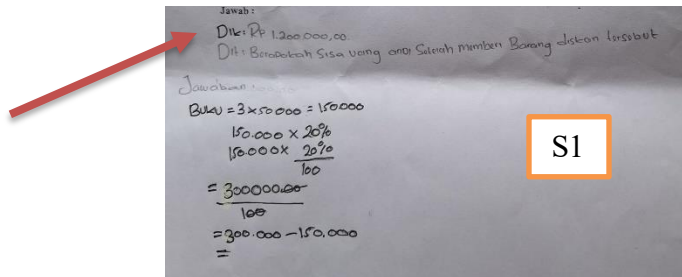 Jawab :
Dik: Rp 1.200.000,00
Dit: Berapakah Sisa uang andi Setelah membeli Barang diskon tersebut
Jawaban
BUKU = 3 x 50 000 = 150.000
150.000 x 20%
150.000 x 20%
100
= 300000.00
100
= 300.000 - 150.000
=
S1